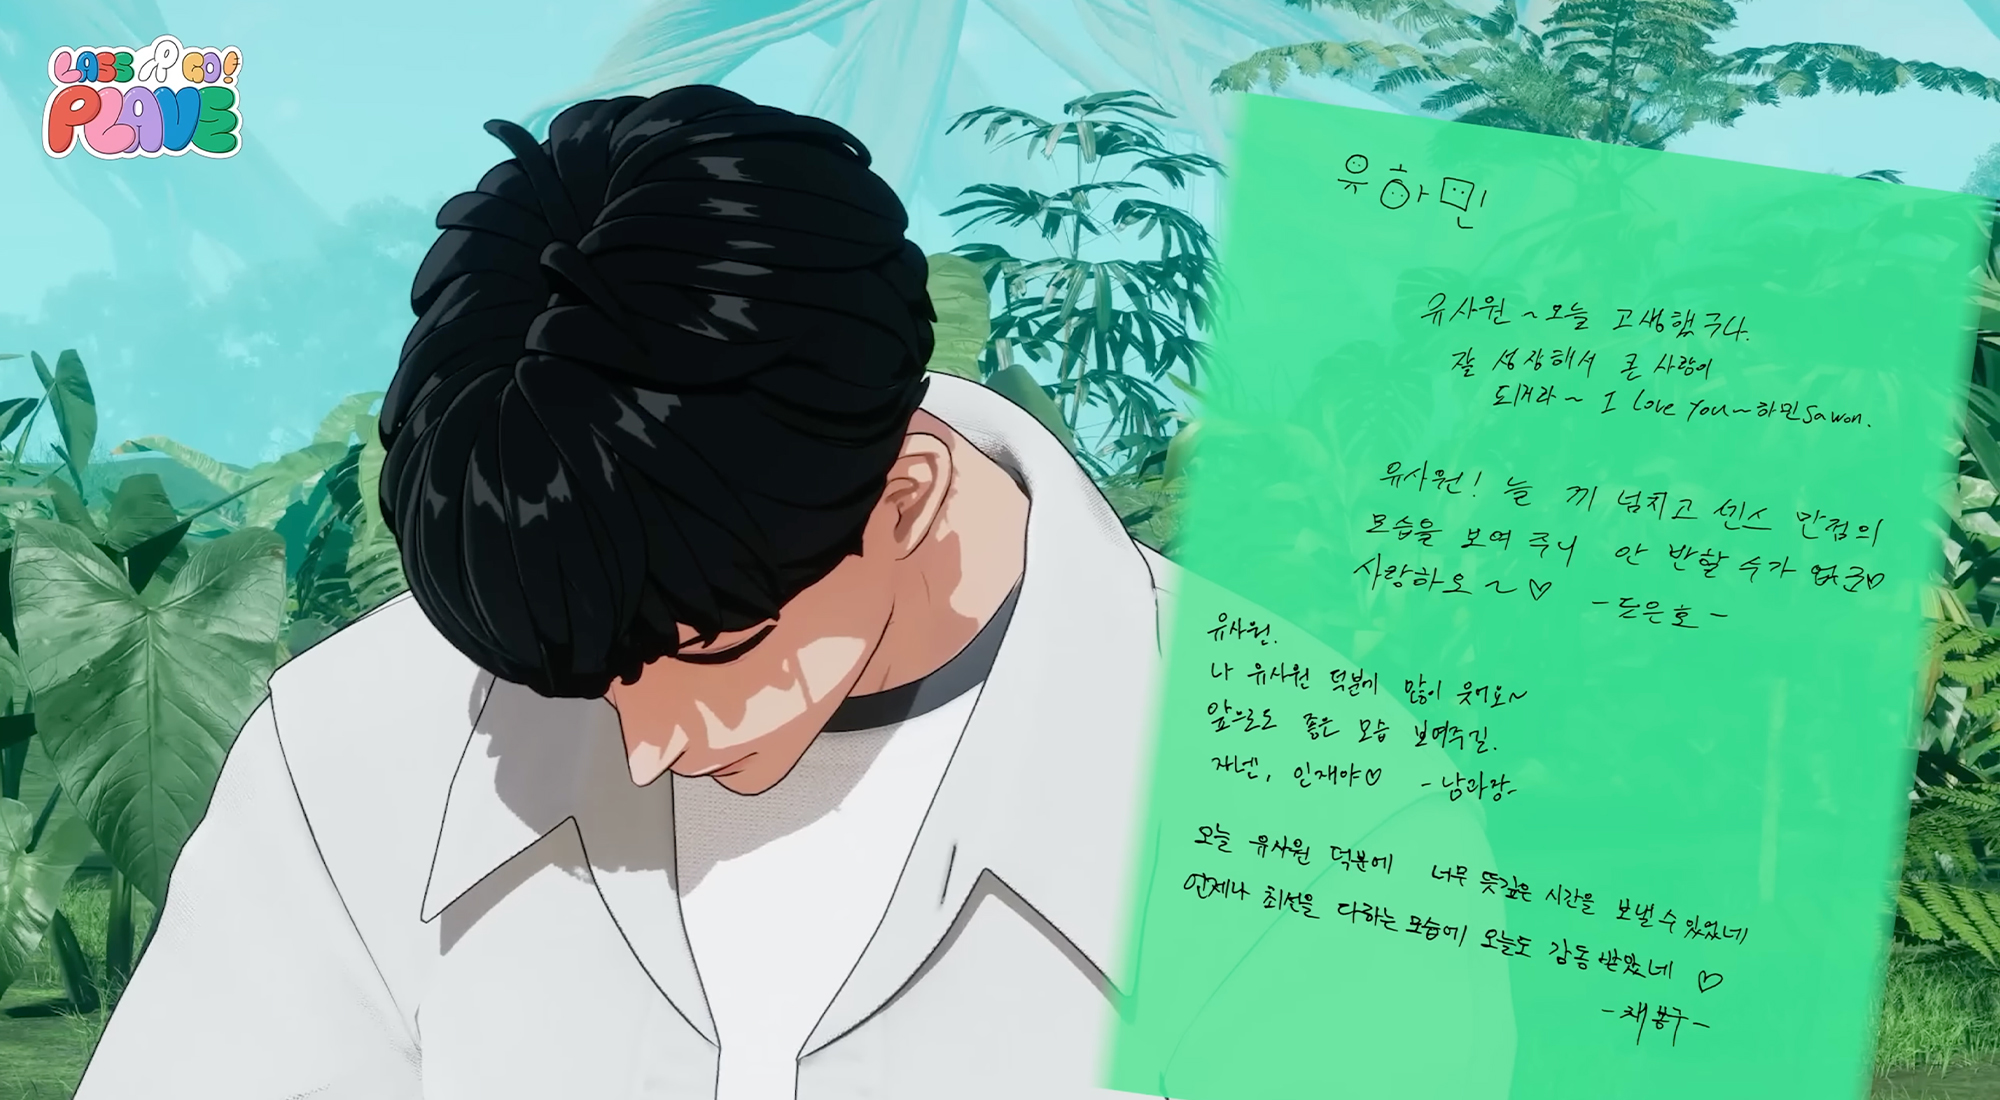 LASS GO!
PLAVE
유하민
유사원~오늘 고생했구나.
잘 성장해서 큰 사람이
되거라~ I love You~하민Sawon.
유사원! 늘 끼 넘치고 센스 만점의
모습을 보여 주니 안 반할 수가 없군♡
사랑하오~♡
-도은호-
유사원.
나 유사원 덕분에 많이 웃어요~
앞으로도 좋은 모습 보여주길.
자넨, 인재야♡ -남과장-
오늘 유사원 덕분에 너무 뜻깊은 시간을 보낼 수 있었네
언제나 최선을 다하는 모습에 오늘도 감동 받았네 ♡
-채봉구-